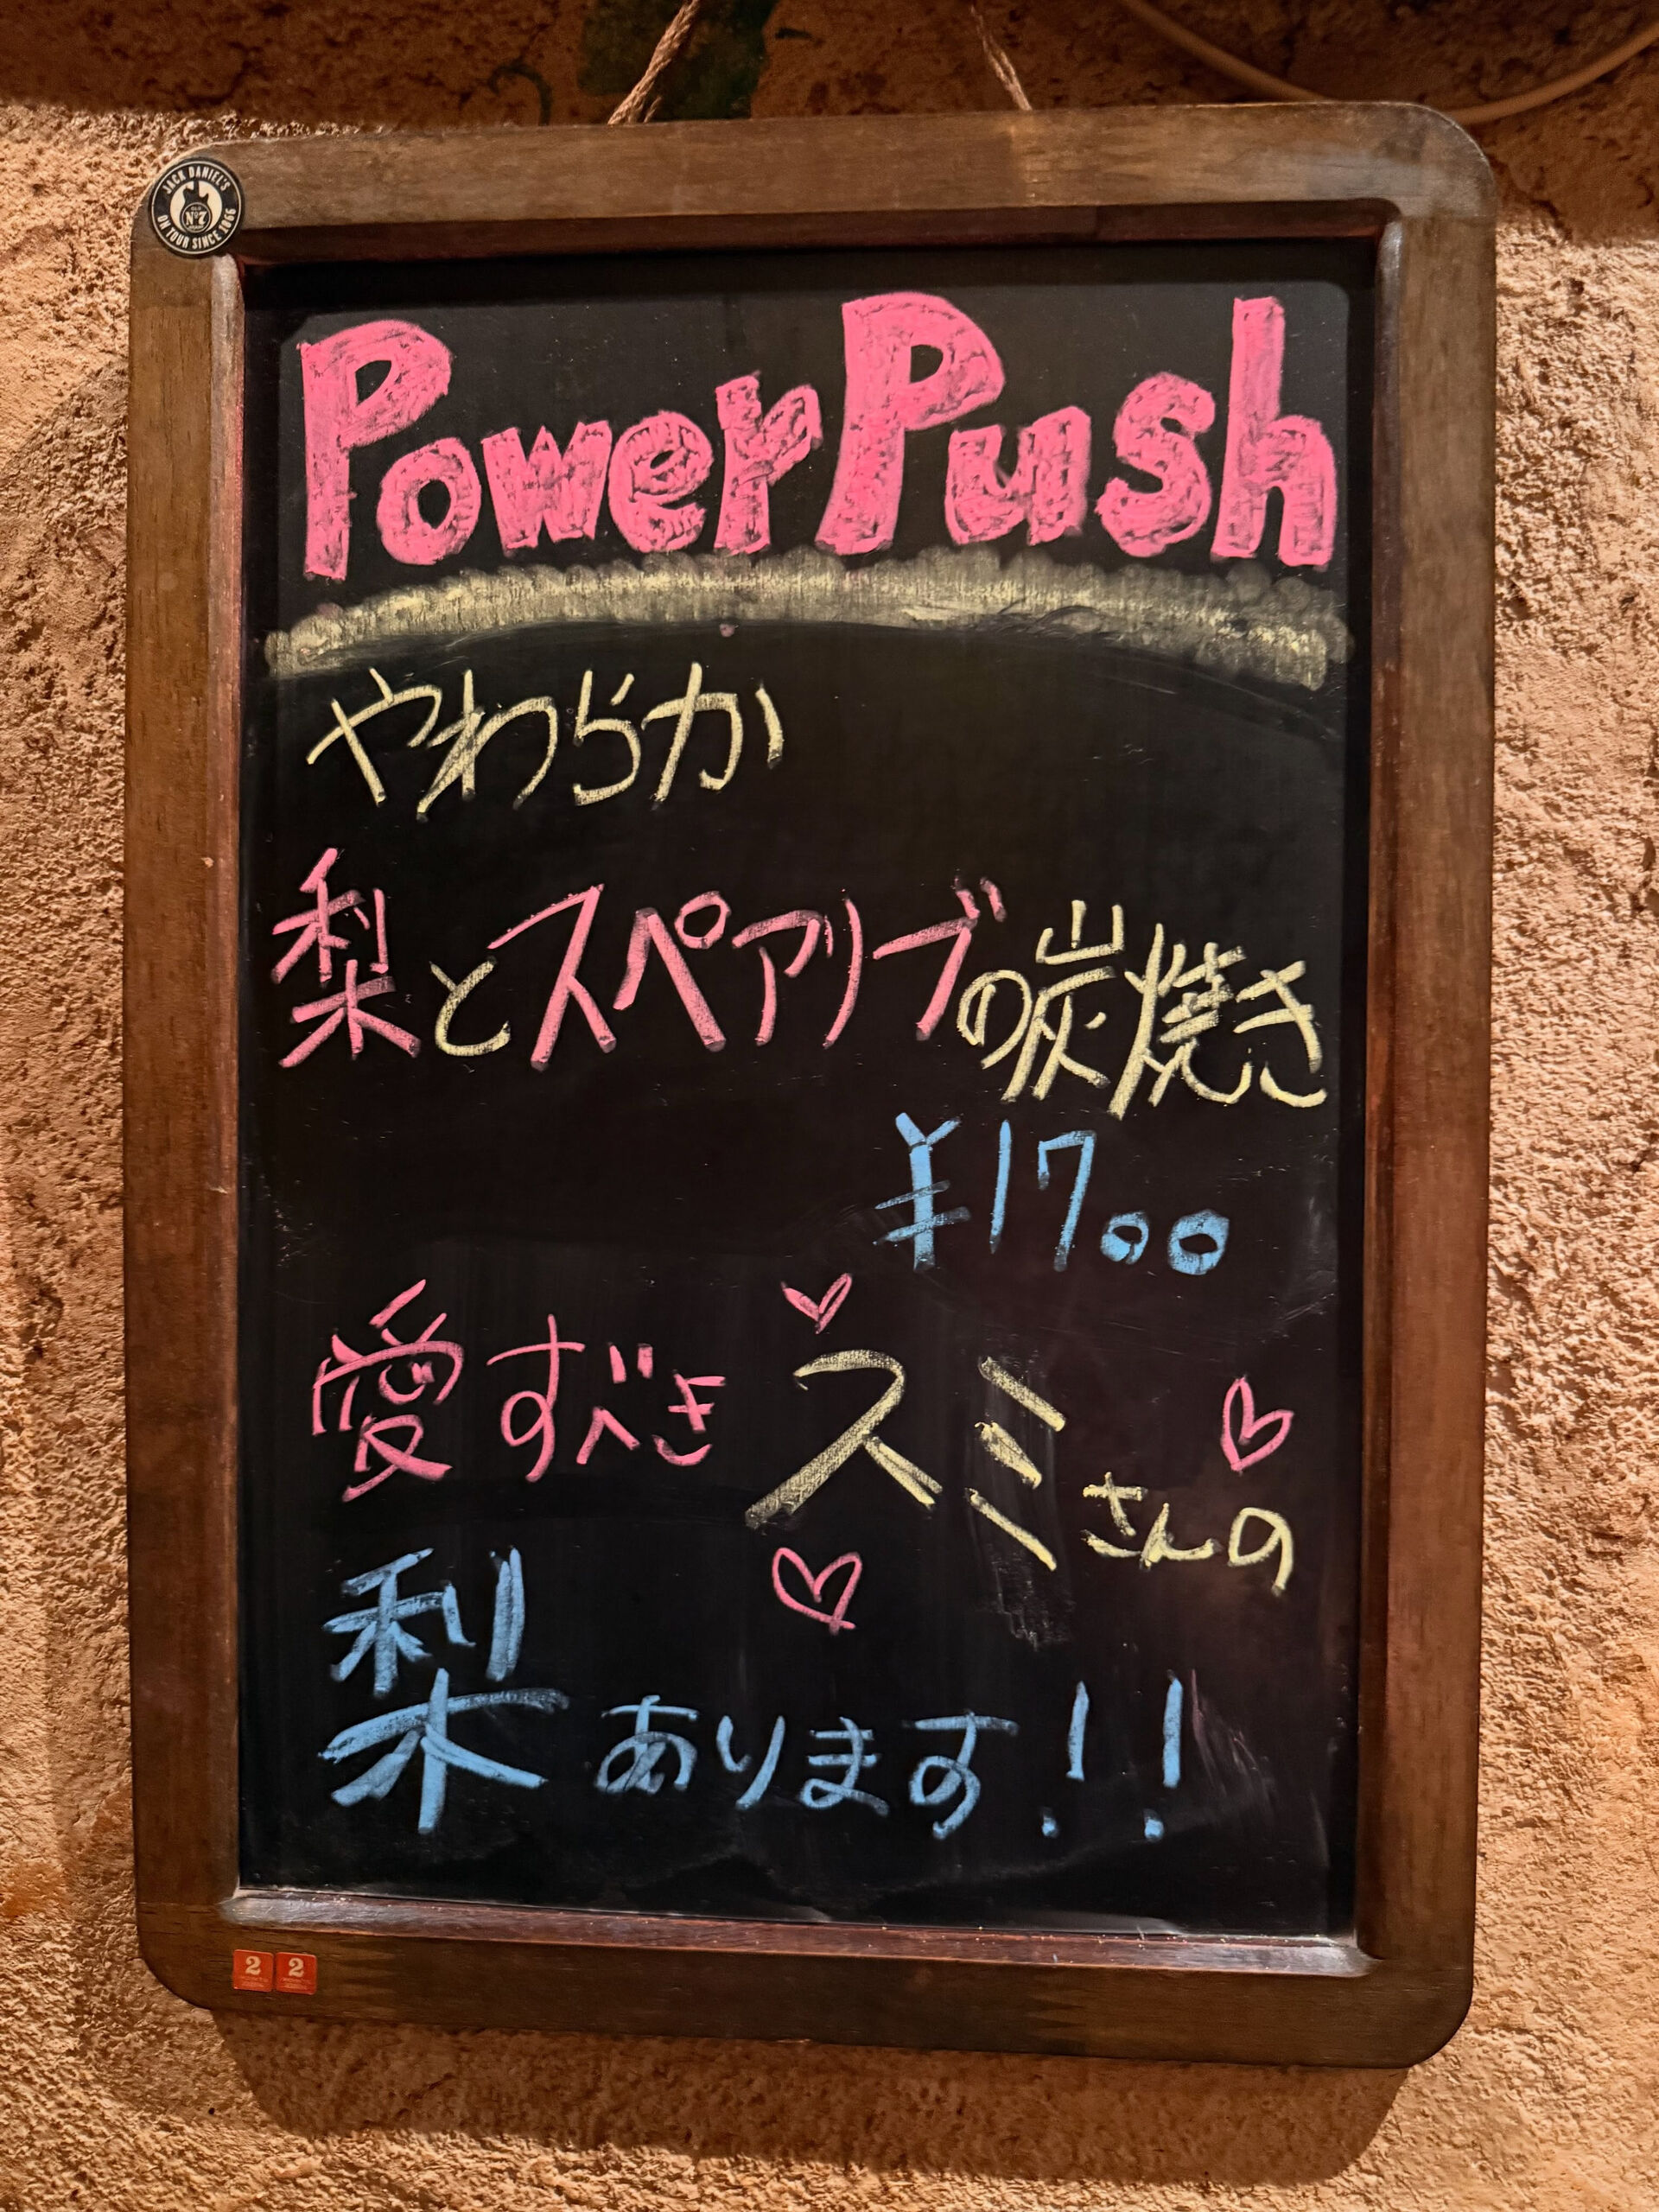 JACK DANIEL'S
OLD
Nº7
ON TOUR SINCE 1866
Power Push
やわらか
梨とスペアリブの炭焼き
¥1700
愛すべきスミさんの
梨あります!!
2 2